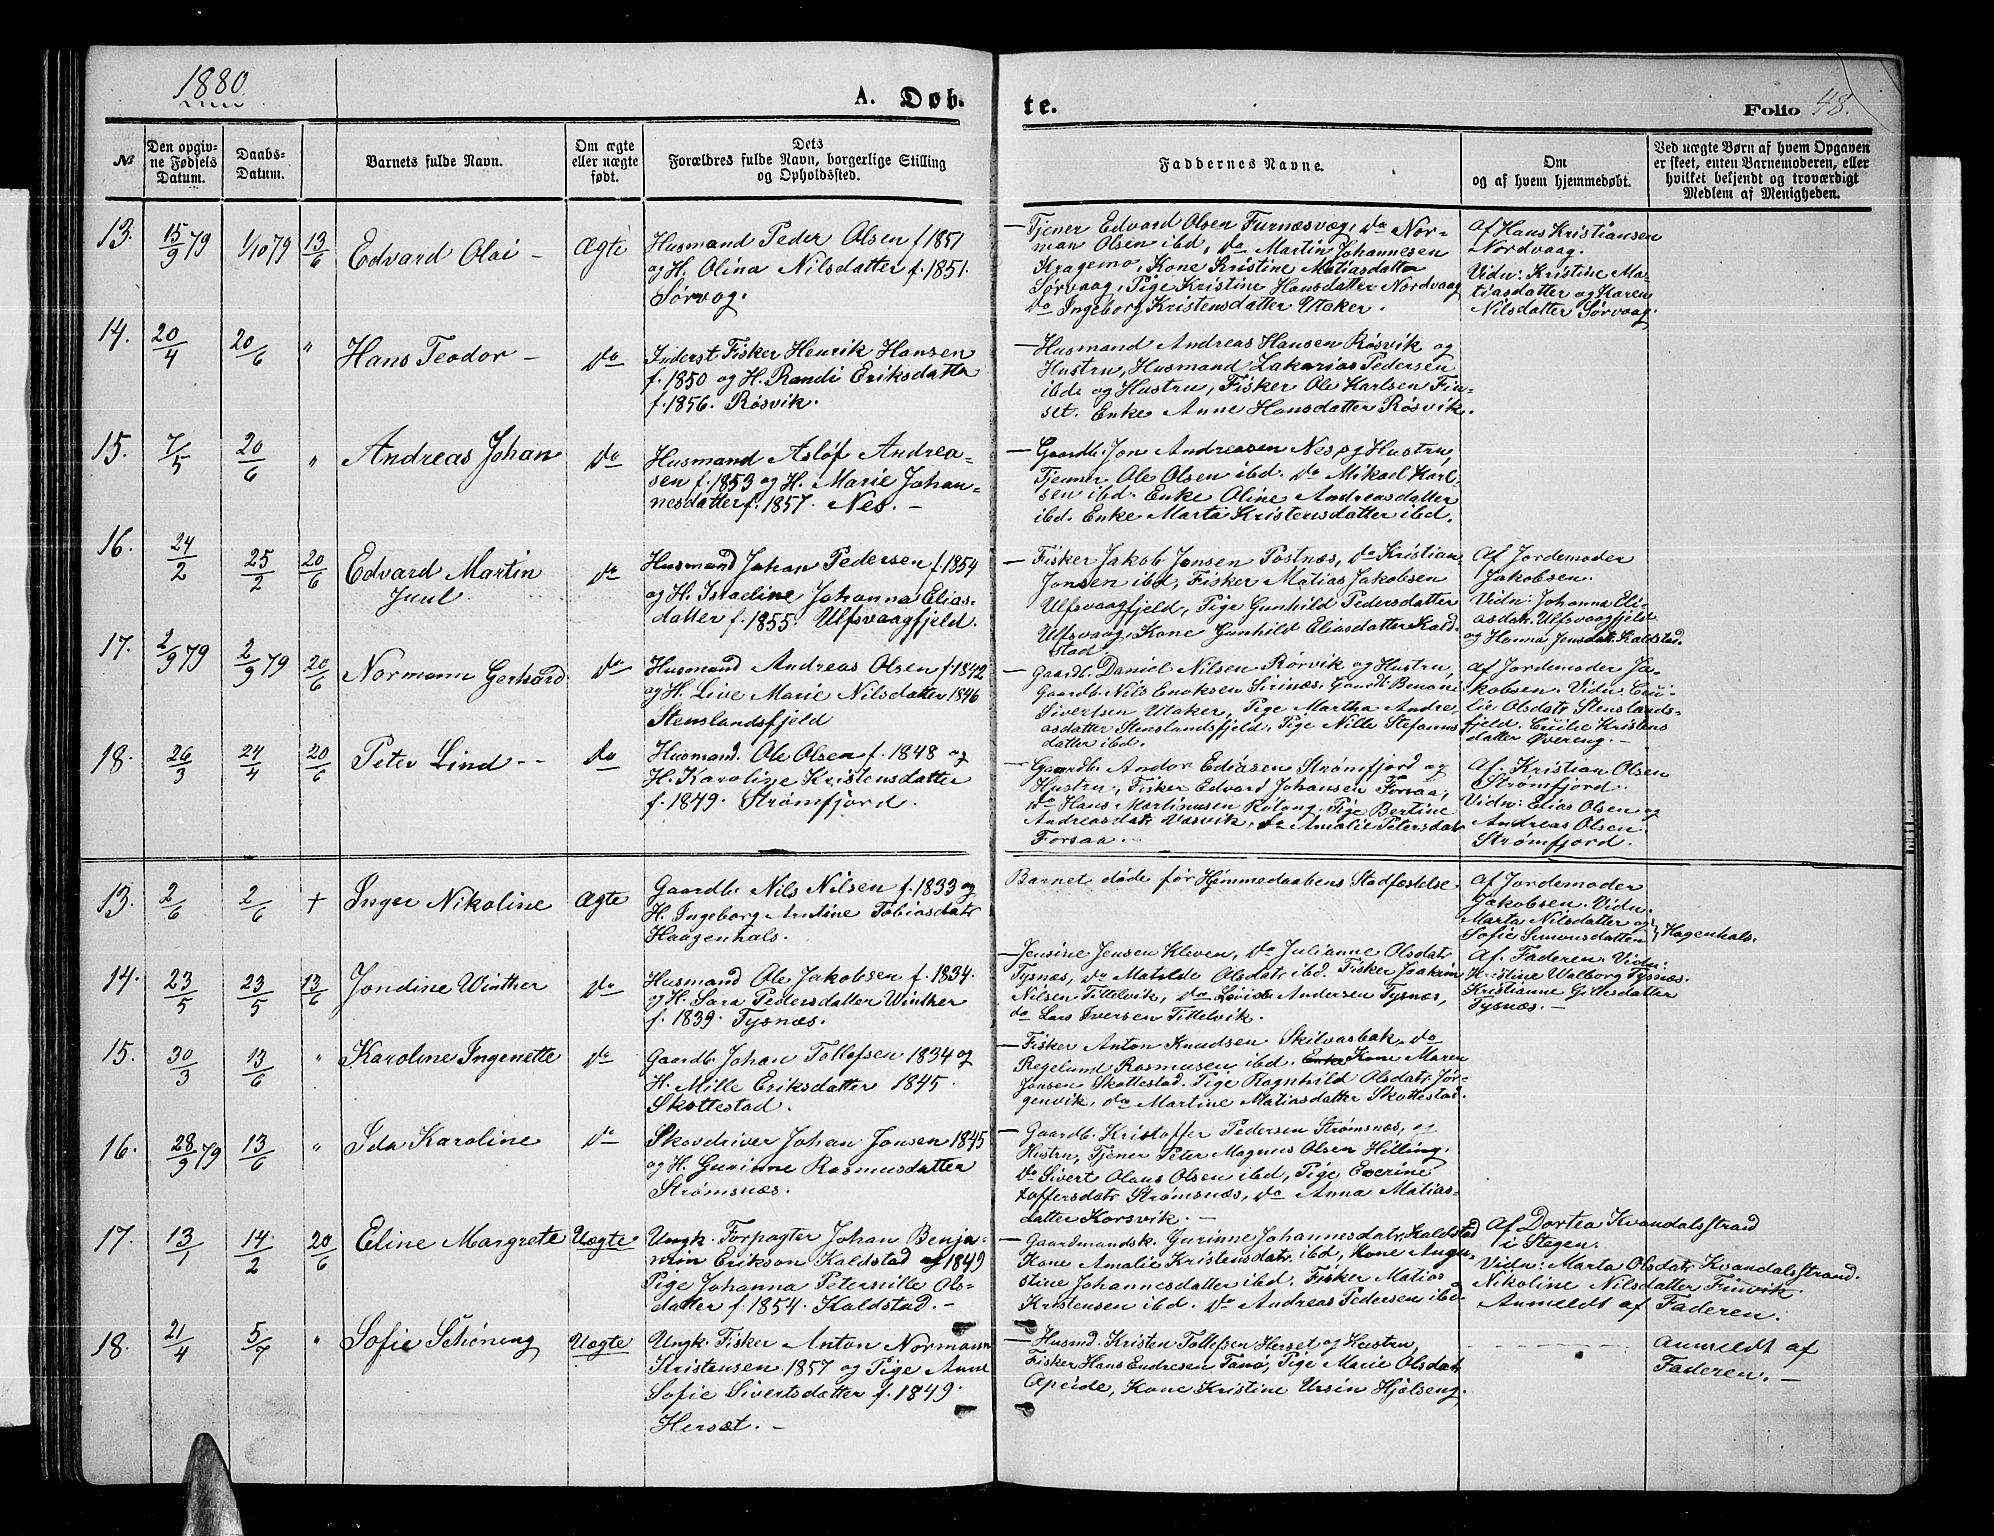 1880
A. Døb-
te.
Folio 48.
№
Den opgiv-
ne Fødsels
Datum.
Daabs-
Datum.
Barnets fulde Navn.
Om ægte
eller uægte
født.
Dets
Forældres fulde Navn, borgerlige Stilling
og Opholdssted.
Faddernes Navne.
Om
og af hvem hjemmedøbt.
Ved uægte Børn af hvem Opgaven
er skeet, enten Barnemoderen, eller
hvilket bekjendt og troværdigt
Medlem af Menigheden.
13. 15/9 79 1/10 79 13/6 Edvard Olai - Ægte
Husmand Peder Olsen f. 1851
og H. Olina Nilsdatter f. 1851.
Sørvog.
- Tjener Edvard Olsen Furnæsvog, do Nor-
man Olsen ibd, do Martin Johannesen
Kragemo, Kone Kristine Matiasdatter
Sørvaag, Pige Kristine Hansdatter Nordvaag
do Ingeborg Kristensdatter Utaker.
Af Hans Kristiansen
Nordvaag.
Vidn: Kristine Ma-
tiasdatter og Karen
Nilsdatter Sørvaag.
14. 20/4 20/6 " Hans Teodor - do
Inderst Fisker Henrik Hansen
f. 1850 og H. Randi Eriksdatter
f. 1856. Røsvik.
- Husmand Andreas Hansen Røsvik og
Hustru, Husmand Zakarias Pedersen
ibde og Hustru, Fisker Ole Karlsen Fin-
set. Enke Anne Hansdatter Røsvik.
15. 7/5 20/6 " Andreas Johan do
Husmand Asløf Andrea-
sen f. 1853 og H. Marie Johan-
nesdatter f. 1857. Nes. -
- Gaardb. Jon Andreasen Nes og Hustru,
Tjener Ole Olsen ibd. do Mikael Karl-
sen ibd. Enke Oline Andreasdatter
ibd. Enke Marta Kristensdatter ibd.
16. 24/2 25/2 20/6 Edvard Martin
Juul. do
Husmand Johan Pedersen f. 1854
og H. Israeline Johanna Elias-
datter f. 1855. Ulfsvaagfjeld.
- Fisker Jakob Jonsen Postnæs, do Kristian
Jonsen ibd, Fisker Matias Jakobsen
Ulfsvaagfjeld, Pige Gunhild Pedersdatter
Ulfsvaag, Kone Gunhild Eliasdatter Kald-
stad
Af Jordemoder
Jakobsen.
Vidn: Johanna Eli-
asdatr Ulfsvaagfjeld
og Hanna Jensdatr Kaldstad.
17. 2/9 79 2/9 79 20/6 Normann Gerhard do
Husmand Andreas Olsen f. 1842
og H. Live Marie Nilsdatter 1846
Stenslandsfjeld
- Gaardb. Daniel Nilsen Rørvik og Hustru,
Gaardb. Nils Enoksen Sirinæs. Gaardb. Benoni
Sivertsen Utaker, Pige Martha Andre-
asdatter Stenslandsfjeld, Pige Nille Stefanus
datter ibd.
Af Jordemoder Ja-
kobsen. Vidn: Ceci-
lie Olsdatr Stenslands-
fjeld. Cecilie Kristens
datter Øvereng. -
18. 26/3 24/4 20/6 Peter Lind - - do
Husmand. Ole Olsen f. 1848 og
H. Karoline Kristensdatter
f. 1849. Strømfjord.
- Gaardb. Andor Ediasen Strømfjord og
Hustru, Fisker Edvard Johansen Forsaa,
do Hans Martinusen Røtang, Pige Bertine
Andreasdatr Vasvik, do Amalie Petersdatr
Forsaa. -
Af. Kristian Olsen
Strømfjord.
Vidn: Elias Olsen og
Andreas Olsen.
Strømfjord.
13. 2/6 2/6 + Inger Nikoline Ægte
Gaardb. Nils Nilsen f. 1833 og
H. Ingeborg Antine Tobiasdatr
Haagenhals.
Barnet døde før Hjemmedaabens Stadfæstelse
Af Jordemoder
Jakobsen. Vidn.
Marta Nilsdatter og
Sofie Simonsdatter } Hagenhals.
14. 23/5 23/5 13/6 Jondine Winther do
Husmand Ole Jakobsen f. 1834.
og H. Sara Pedersdatter Winther
f. 1839. Tysnæs.
- Jensine Jensen Kleven, do Julianne Olsdatr
Tysnæs, do Matilde Olsdatr ibd. Fisker Joakim
Nilsen Tittelvik, do Andersen Tysnæs,
do Lars Iversen Tittelvik.
Af. Faderen. Vidn:
Kristine Walborg Tysnæs.
Kristianne Gillesdatter
Tysnæs. -
15. 30/3 13/6 " Karoline Ingenette do
Gaardb. Johan Tollefsen 1834 og
H. Mille Eriksdatter 1845.
Skottestad.
- Fisker Anton Knudsen Skilvasbak, do
Regelund Rasmusen ibd. Enke Kone Maren
Jonsen Skottestad. Pige Ragnhild Olsdatr Jør-
genvik, do Martine Matiasdatter Skottestad.
16. 28/9 79 13/6 " Ida Karoline do
Skovdriver Johan Jonsen 1845
og H. Gurinne Rasmusdatter
Strømsnæs.
- Gaardb. Kristoffer Pedersen Strømsnæs, og
Hustru, Tjener Peter Magnus Olsen Hilling.
do Sivert Olaus Olsen ibd, Pige Everine
toffersdatr Strømsnæs, do Anna Matias-
datter Korsvik. -
17. 13/1 14/2 20/6 Eline Margrete Uægte
Ungk. Forpagter Johan Benja-
min Erikson Kaldstad af 1849
Pige Johanna Peternille Ols-
datter f. 1854. Kaldstad. -
- Gaardmandsk. Gurinne Johannesdatr, Kaldstad
Kone Amalie Kristensdatr ibd, Kone Augu-
stine Johannesdatter ibd. Fisker Matias
Kristensen ibd. do Andreas Pedersen ibd.
Af Dortea Kvandalsstrand
i Stegen.
Vidn: Marta Olsdatr Kvandalsstrand.
Nikoline Nilsdatter Finvik.
Anmeldt af Faderen.
18. 21/4 5/7 " Sofie Schøning Uægte
Ungk. Fisker Anton Normann
Kristensen. 1857 og Pige Anne
Sofie Sivertsdatter f. 1849.
Hersæt. -
- Husmd. Kristen Tollefsen Herset og Hustru,
Fisker Hans Endresen Tanø, Pige Marie Olsdatr
Apeide, Kone Kristine Ursin Hjelseng.
Anmeldt af
Faderen. -